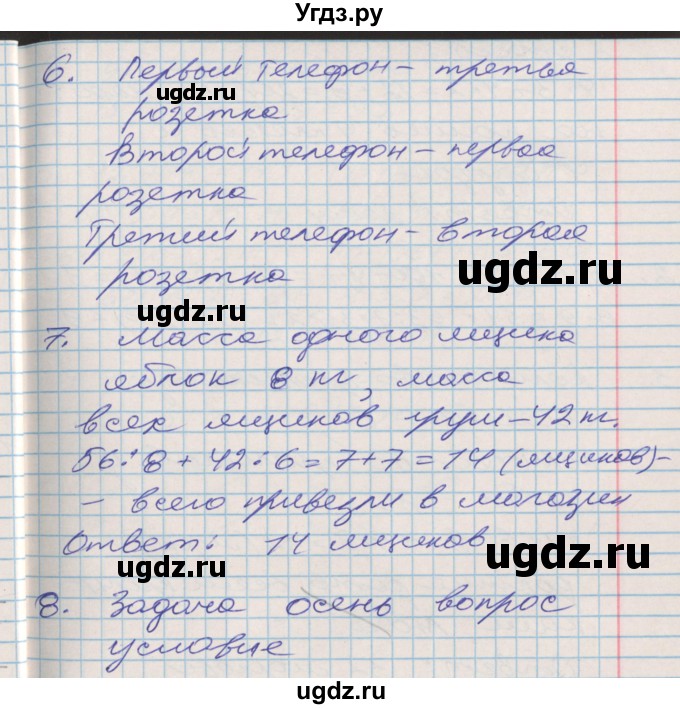 Угдз.ру
6. Первый телефон – третья
ugdz.ru
розетка
Второй телефон – первая
розетка
Третий телефон – вторая
ugdz.ru
розетка
ugdz.ru
7. Масса одного ящика
яблок 8 кг, масса
ugdz.ru
всех ящиков груш – 42 кг.
56 : 8 + 42 : 6 = 7 + 7 = 14 (ящиков) –
– всего привезли в магазин
Ответ: 14 ящиков
ugdz.ru
ugdz.ru
8. Задача осень вопрос
условие
ugdz.ru
ugdz.ru